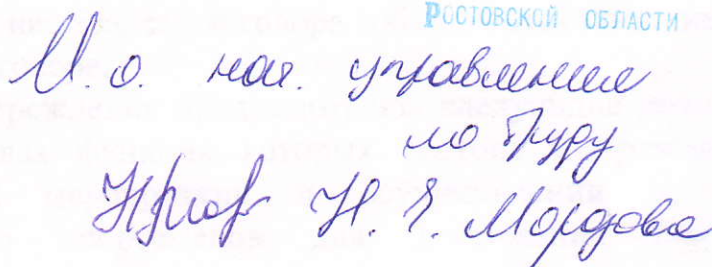 РОСТОВСКОЙ ОБЛАСТИ
И.о. нач. управления
по труду
Н. Е. Мордова